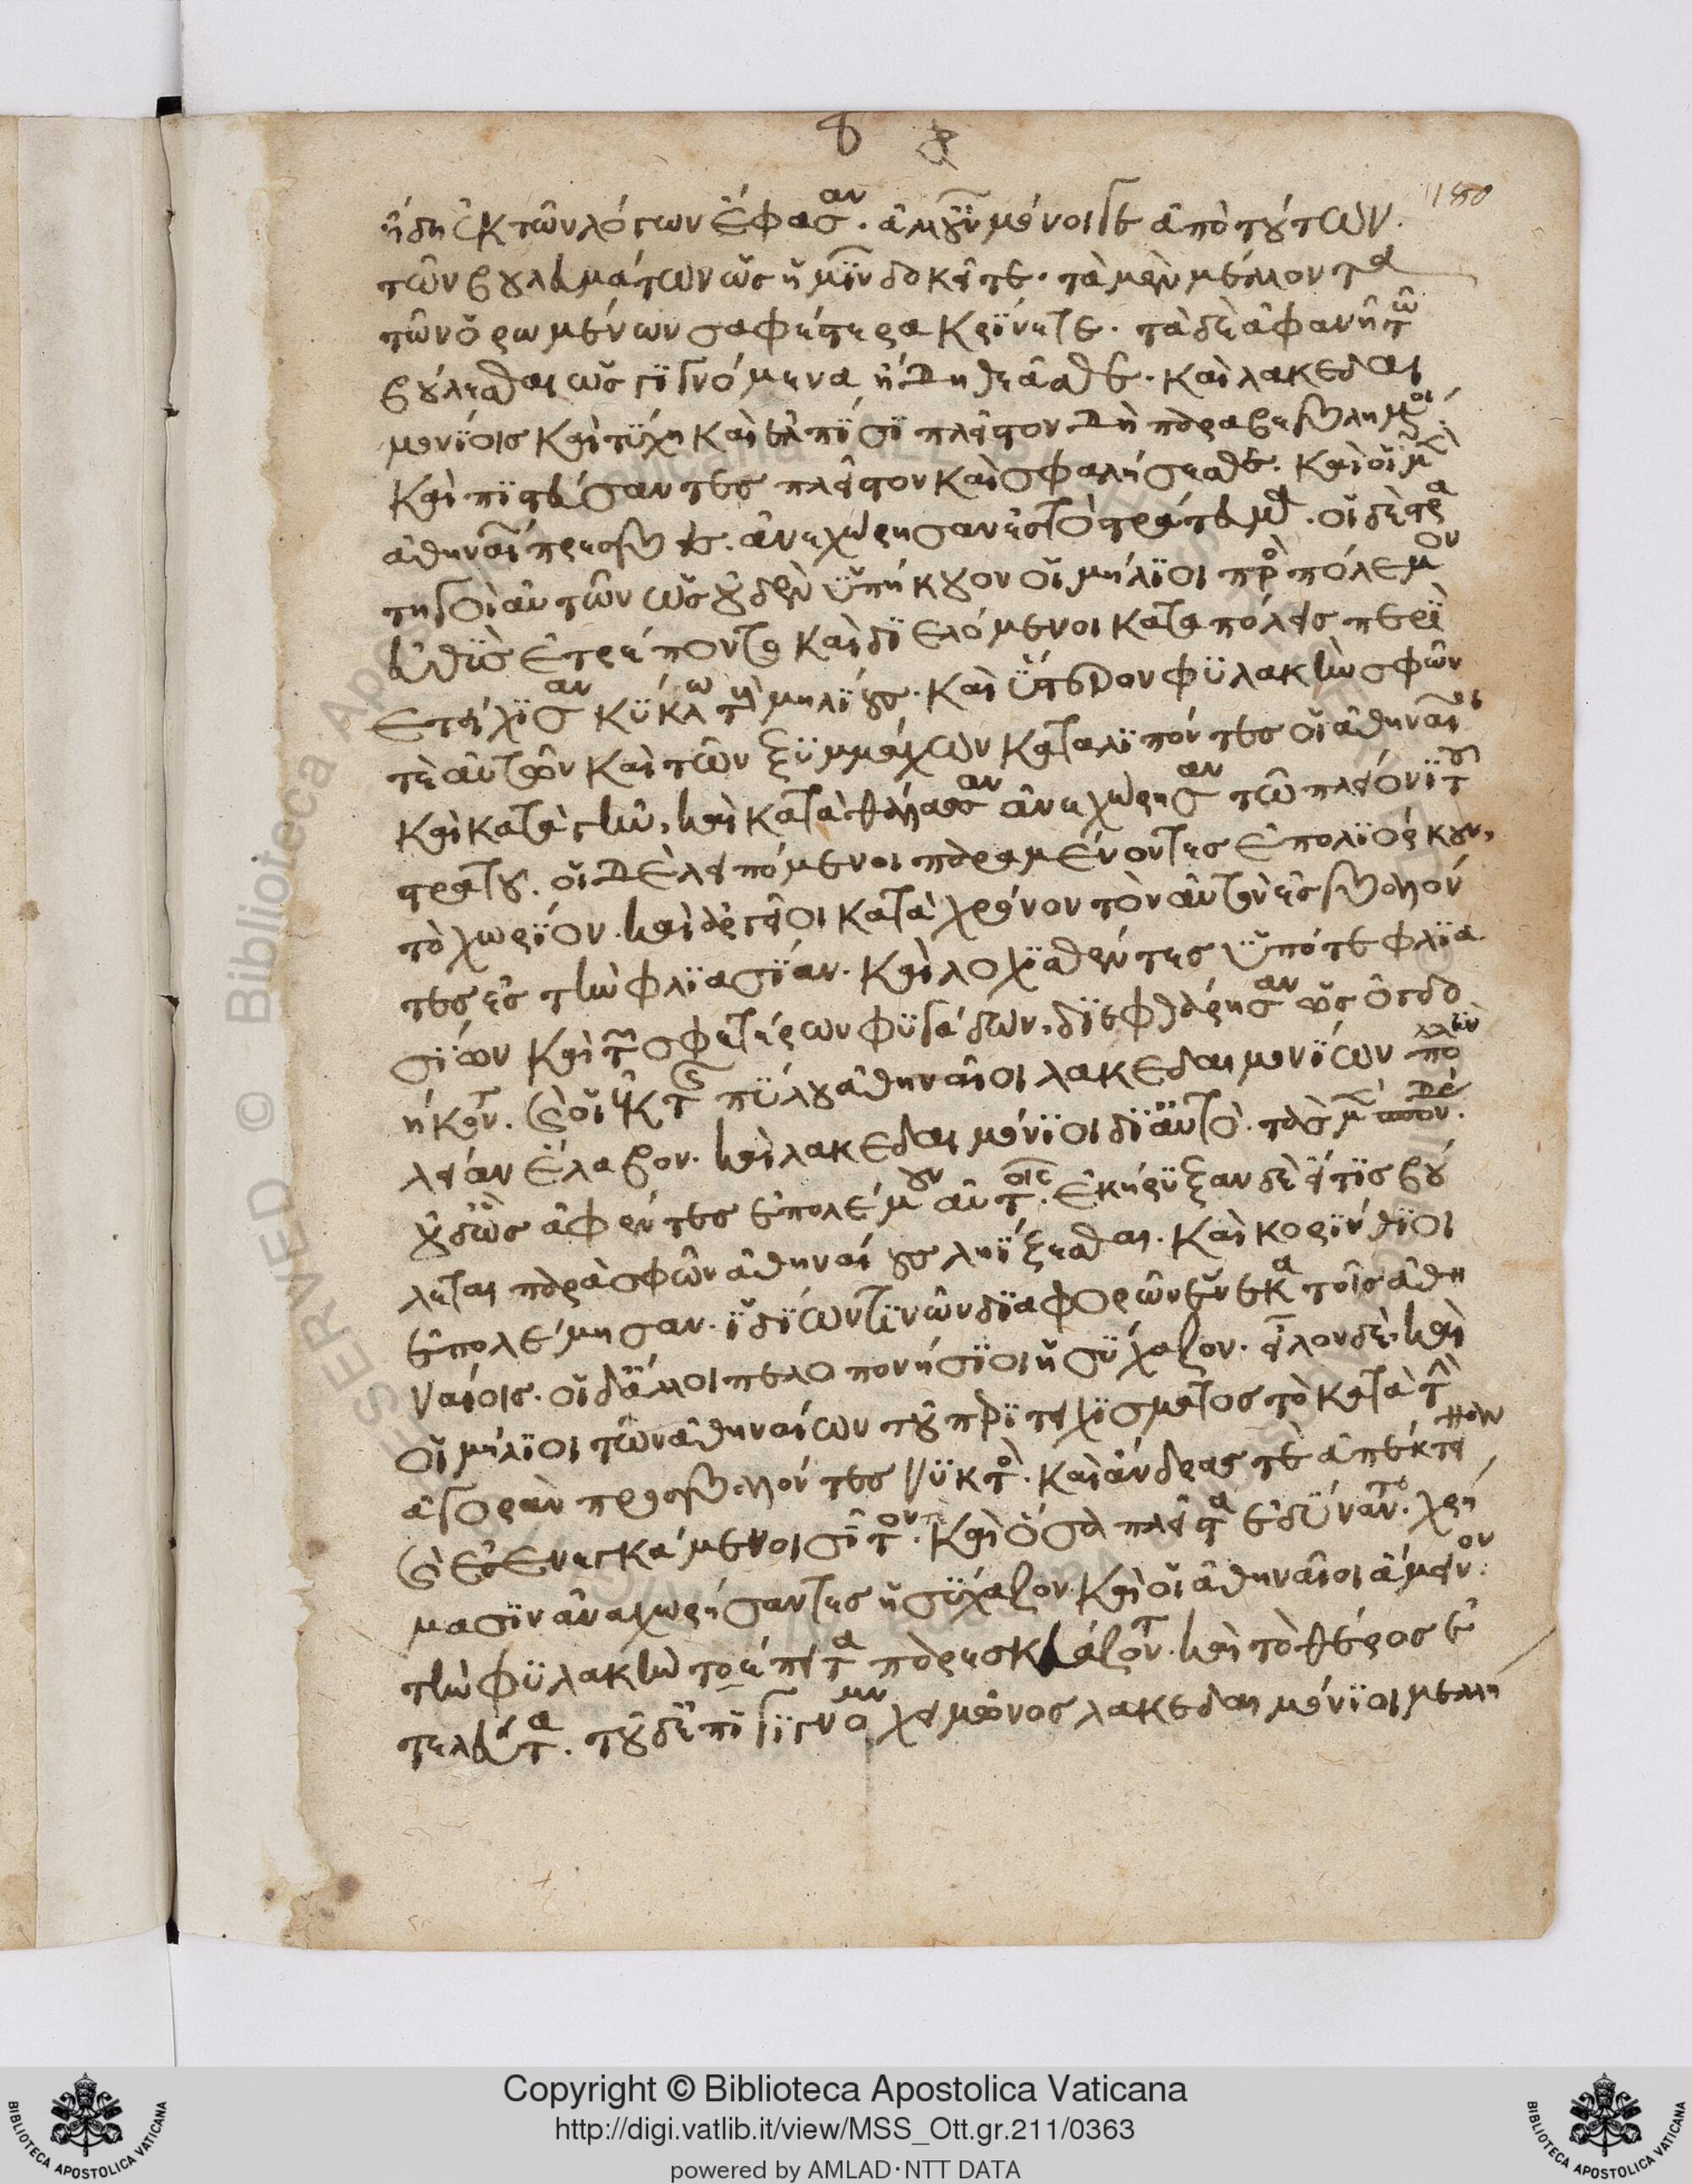 180
ἤδη ἐκ τῶν λόγων ἔφασαν. ἀλλ' οὖν μόνοι γε ἀπὸ τούτων
τῶν βουλευμάτων ὡς ἡμῖν δοκεῖτε. τὰ μὲν μέλλοντα
τῶν ὁρωμένων σαφέστερα κρίνετε. τὰ δὲ ἀφανῆ τῶ
βούλεσθαι ὡς γιγνόμενα ἤδη θεᾶσθε. καὶ λακεδαι
μονίοις καὶ τύχη καὶ ἐλπίσι πλεῖστον δὴ παραβεβλημένοι
καὶ πιστεύσαντες πλεῖστον καὶ σφαλήσεσθε. καὶ οἱ μὲν
ἀθηναίων πρέσβεις. ἀνεχώρησαν ἐς τὸ στράτευμα. οἱ δὲ στρα
τηγοὶ αὐτῶν ὡς οὐδὲν ὑπήκουον οἱ μήλιοι πρὸς πόλεμον
εὐθὺς ἐτρέποντο καὶ διελόμενοι κατὰ πόλεις περιε
ετείχισαν κύκλω τοὺς μηλίους. καὶ ὕστερον φυλακὴν σφῶν
τε αὐτῶν καὶ τῶν ξυμμάχων καταλιπόντες οἱ ἀθηναῖοι
καὶ κατὰ γῆν καὶ κατὰ θάλασσαν ἀνεχώρησαν τῶ πλείονι τοῦ
στρατοῦ. οἱ δὲ λειπόμενοι παραμένοντες ἐπολιόρκουν
τὸ χωρίον. καὶ ἀργεῖοι κατὰ χρόνον τὸν αὐτὸν ἐσβαλόν
τες ἐς τὴν φλιασίαν. καὶ λοχισθέντες ὑπό τε φλια
σίων καὶ τῶν σφετέρων φυγάδων. διεφθάρησαν ὡς ὀγδο
ήκοντα. καὶ οἱ ἐκ τῆς πύλου ἀθηναῖοι λακεδαιμονίων πολλὴν
λείαν ἔλαβον. καὶ λακεδαιμόνιοι δι' αὐτὸ. τὰς μὲν σπονδὰς
οὐδ' ὣς ἀφέντες ἐπολέμουν αὐτοῖς. ἐκήρυξαν δὲ εἴ τις βού
λεται παρὰ σφῶν ἀθηναίους ληΐζεσθαι. καὶ κορίνθιοι
ἐπολέμησαν. ἰδίων τινῶν διαφορῶν ἕνεκα τοῖς ἀθη
ναίοις. οἱ δ' ἄλλοι πελοποννήσιοι ἡσύχαζον. εἷλον δὲ καὶ
οἱ μήλιοι τῶν ἀθηναίων τοῦ περιτειχίσματος τὸ κατὰ τὴν
ἀγορὰν προσβαλόντες νυκτὸς. καὶ ἄνδρας τε ἀπέκτειναν
καὶ ἐσενεγκάμενοι σῖτόν τε. καὶ ὅσα πλεῖστα ἐδύναντο. χρή
μασιν ἀναχωρήσαντες ἡσύχαζον. καὶ οἱ ἀθηναῖοι ἄμεινον
τὴν φυλακὴν τὸ ἔπειτα παρεσκευάζοντο. καὶ τὸ θέρος ἐ
τελεύτα. τοῦ δ' ἐπιγιγνομένου χειμῶνος λακεδαιμόνιοι μελλή
Copyright © Biblioteca Apostolica Vaticana
http://digi.vatlib.it/view/MSS_Ott.gr.211/0363
powered by AMLAD·NTT DATA
BIBLIOTECA APOSTOLICA VATICANA
BIBLIOTECA APOSTOLICA VATICANA